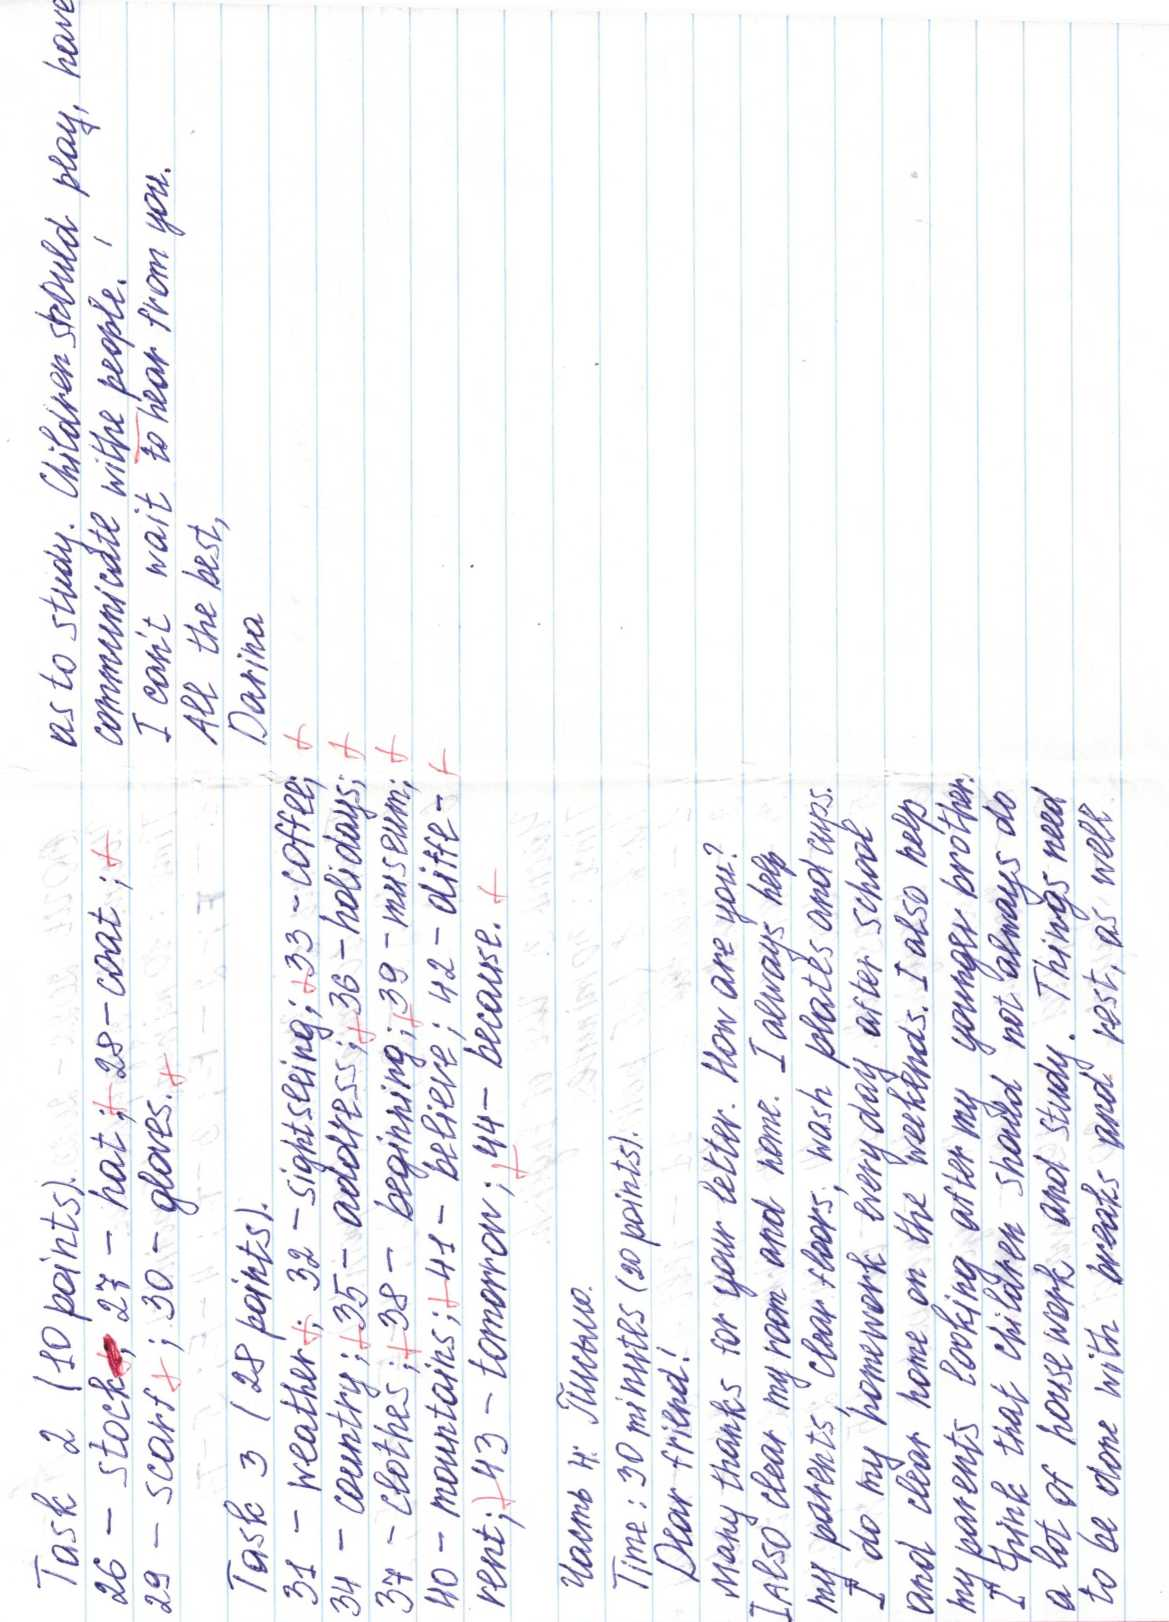 Task 2 (10 points).
26 – stock; 27 – hat; + 28 – coat; +
29 – scarf +; 30 – gloves. +
Task 3 (28 points).
31 – weather +; 32 – sightseeing; + 33 – coffee; +
34 – country; + 35 – address; + 36 – holidays; +
37 – clothes; + 38 – beginning; + 39 – museum; +
40 – mountains; + 41 – believe; 42 – diffe- +
rent; + 43 – tomorrow; + 44 – because. +
Часть 4: Письмо.
Time: 30 minutes (20 points).
Dear friend!
Many thanks for your letter. How are you?
I also clear my room and home. I always help
my parents clear floors, wash plates and cups.
I do my homework every day after school
and clear home on the weekends. I also help
my parents looking after my younger brother.
I think that children should not always do
a lot of housework and study. Things need
to be done with breaks and rest, as well
as to study. Children should play, have
communicate withe people.
I can't wait to hear from you.
All the best,
Darina